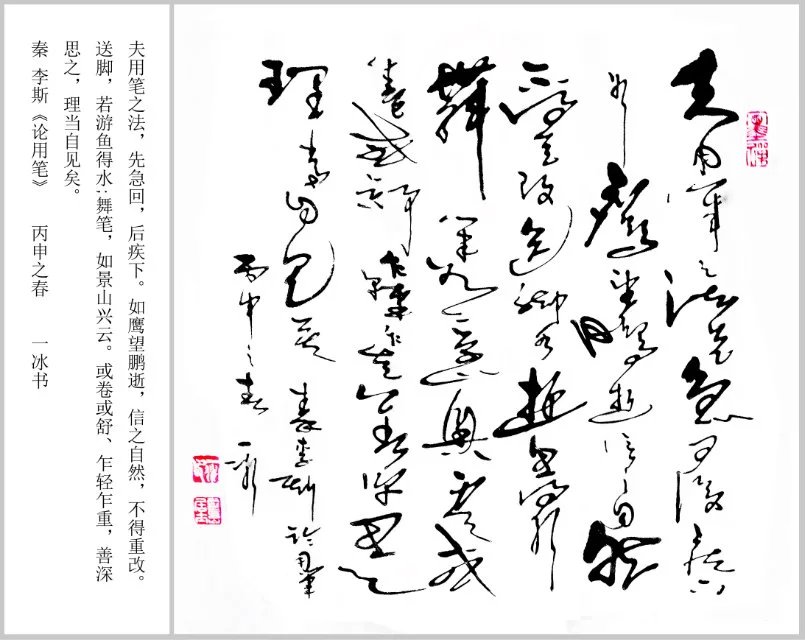 夫用筆之法先急回後疾下
如鷹望鵬逝信之自然
不得重改送腳若遊魚得水
舞筆如景山興雲或
卷或舒乍輕乍重善深思之
理當自見矣 秦李斯論用筆
丙申之春 一冰
夫用笔之法，先急回，后疾下。如鹰望鹏逝，信之自然，不得重改。
送脚，若游鱼得水;舞笔，如景山兴云。或卷或舒、乍轻乍重，善深
思之，理当自见矣。
秦 李斯《论用笔》 丙申之春 一冰书